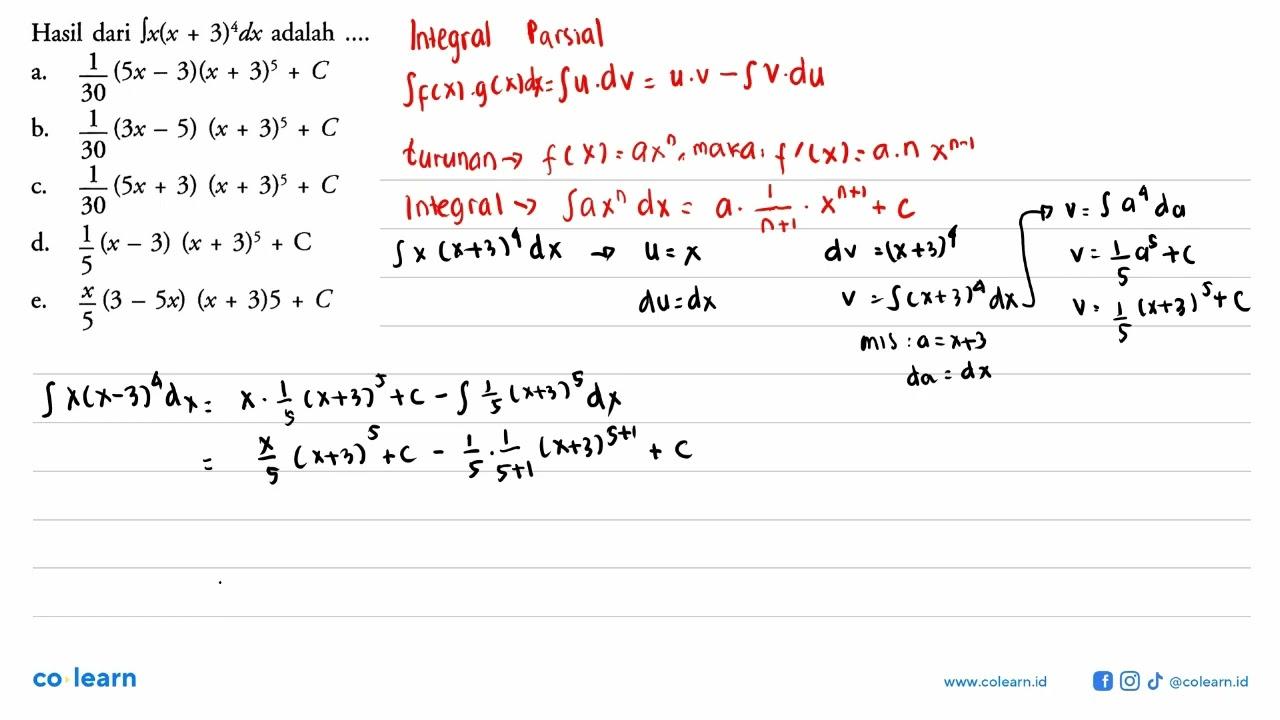 Hasil dari ∫x(x + 3)⁴dx adalah ....
a. 1/30 (5x − 3)(x + 3)⁵ + C
b. 1/30 (3x − 5) (x + 3)⁵ + C
c. 1/30 (5x + 3) (x + 3)⁵ + C
d. 1/5 (x − 3) (x + 3)⁵ + C
e. x/5 (3 − 5x) (x + 3)5 + C
Integral Parsial
∫f(x).g(x)dx = ∫u.dv = u.v − ∫v.du
turunan → f(x) = axⁿ, maka: f'(x) = a.n xⁿ⁻¹
Integral → ∫axⁿ dx = a. 1/n+1 . xⁿ⁺¹ + C
∫x (x+3)⁴ dx → u = x
du = dx
dv = (x+3)⁴
v = ∫(x+3)⁴ dx
mis : a = x+3
da = dx
→ v = ∫a⁴ da
v = 1/5 a⁵ + C
v = 1/5 (x+3)⁵ + C
∫x(x−3)⁴dx = x . 1/5 (x+3)⁵ + C − ∫ 1/5 (x+3)⁵ dx
= x/5 (x+3)⁵ + C − 1/5 . 1/5+1 (x+3)⁵⁺¹ + C
co·learn
www.colearn.id
@colearn.id